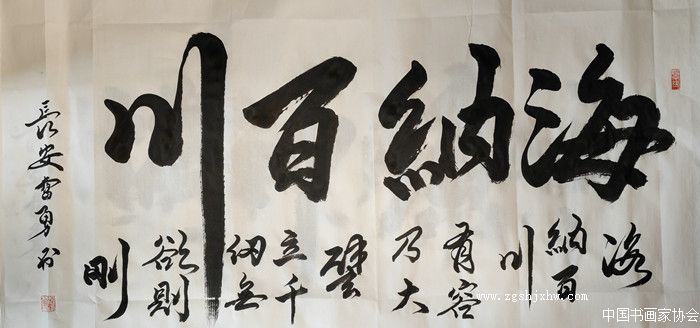 海納百川
海
納百
川
有容
乃大
壁
立千
仞無
欲則
剛
長安雷勇书
www.zgshjxhw.com
中国书画家协会